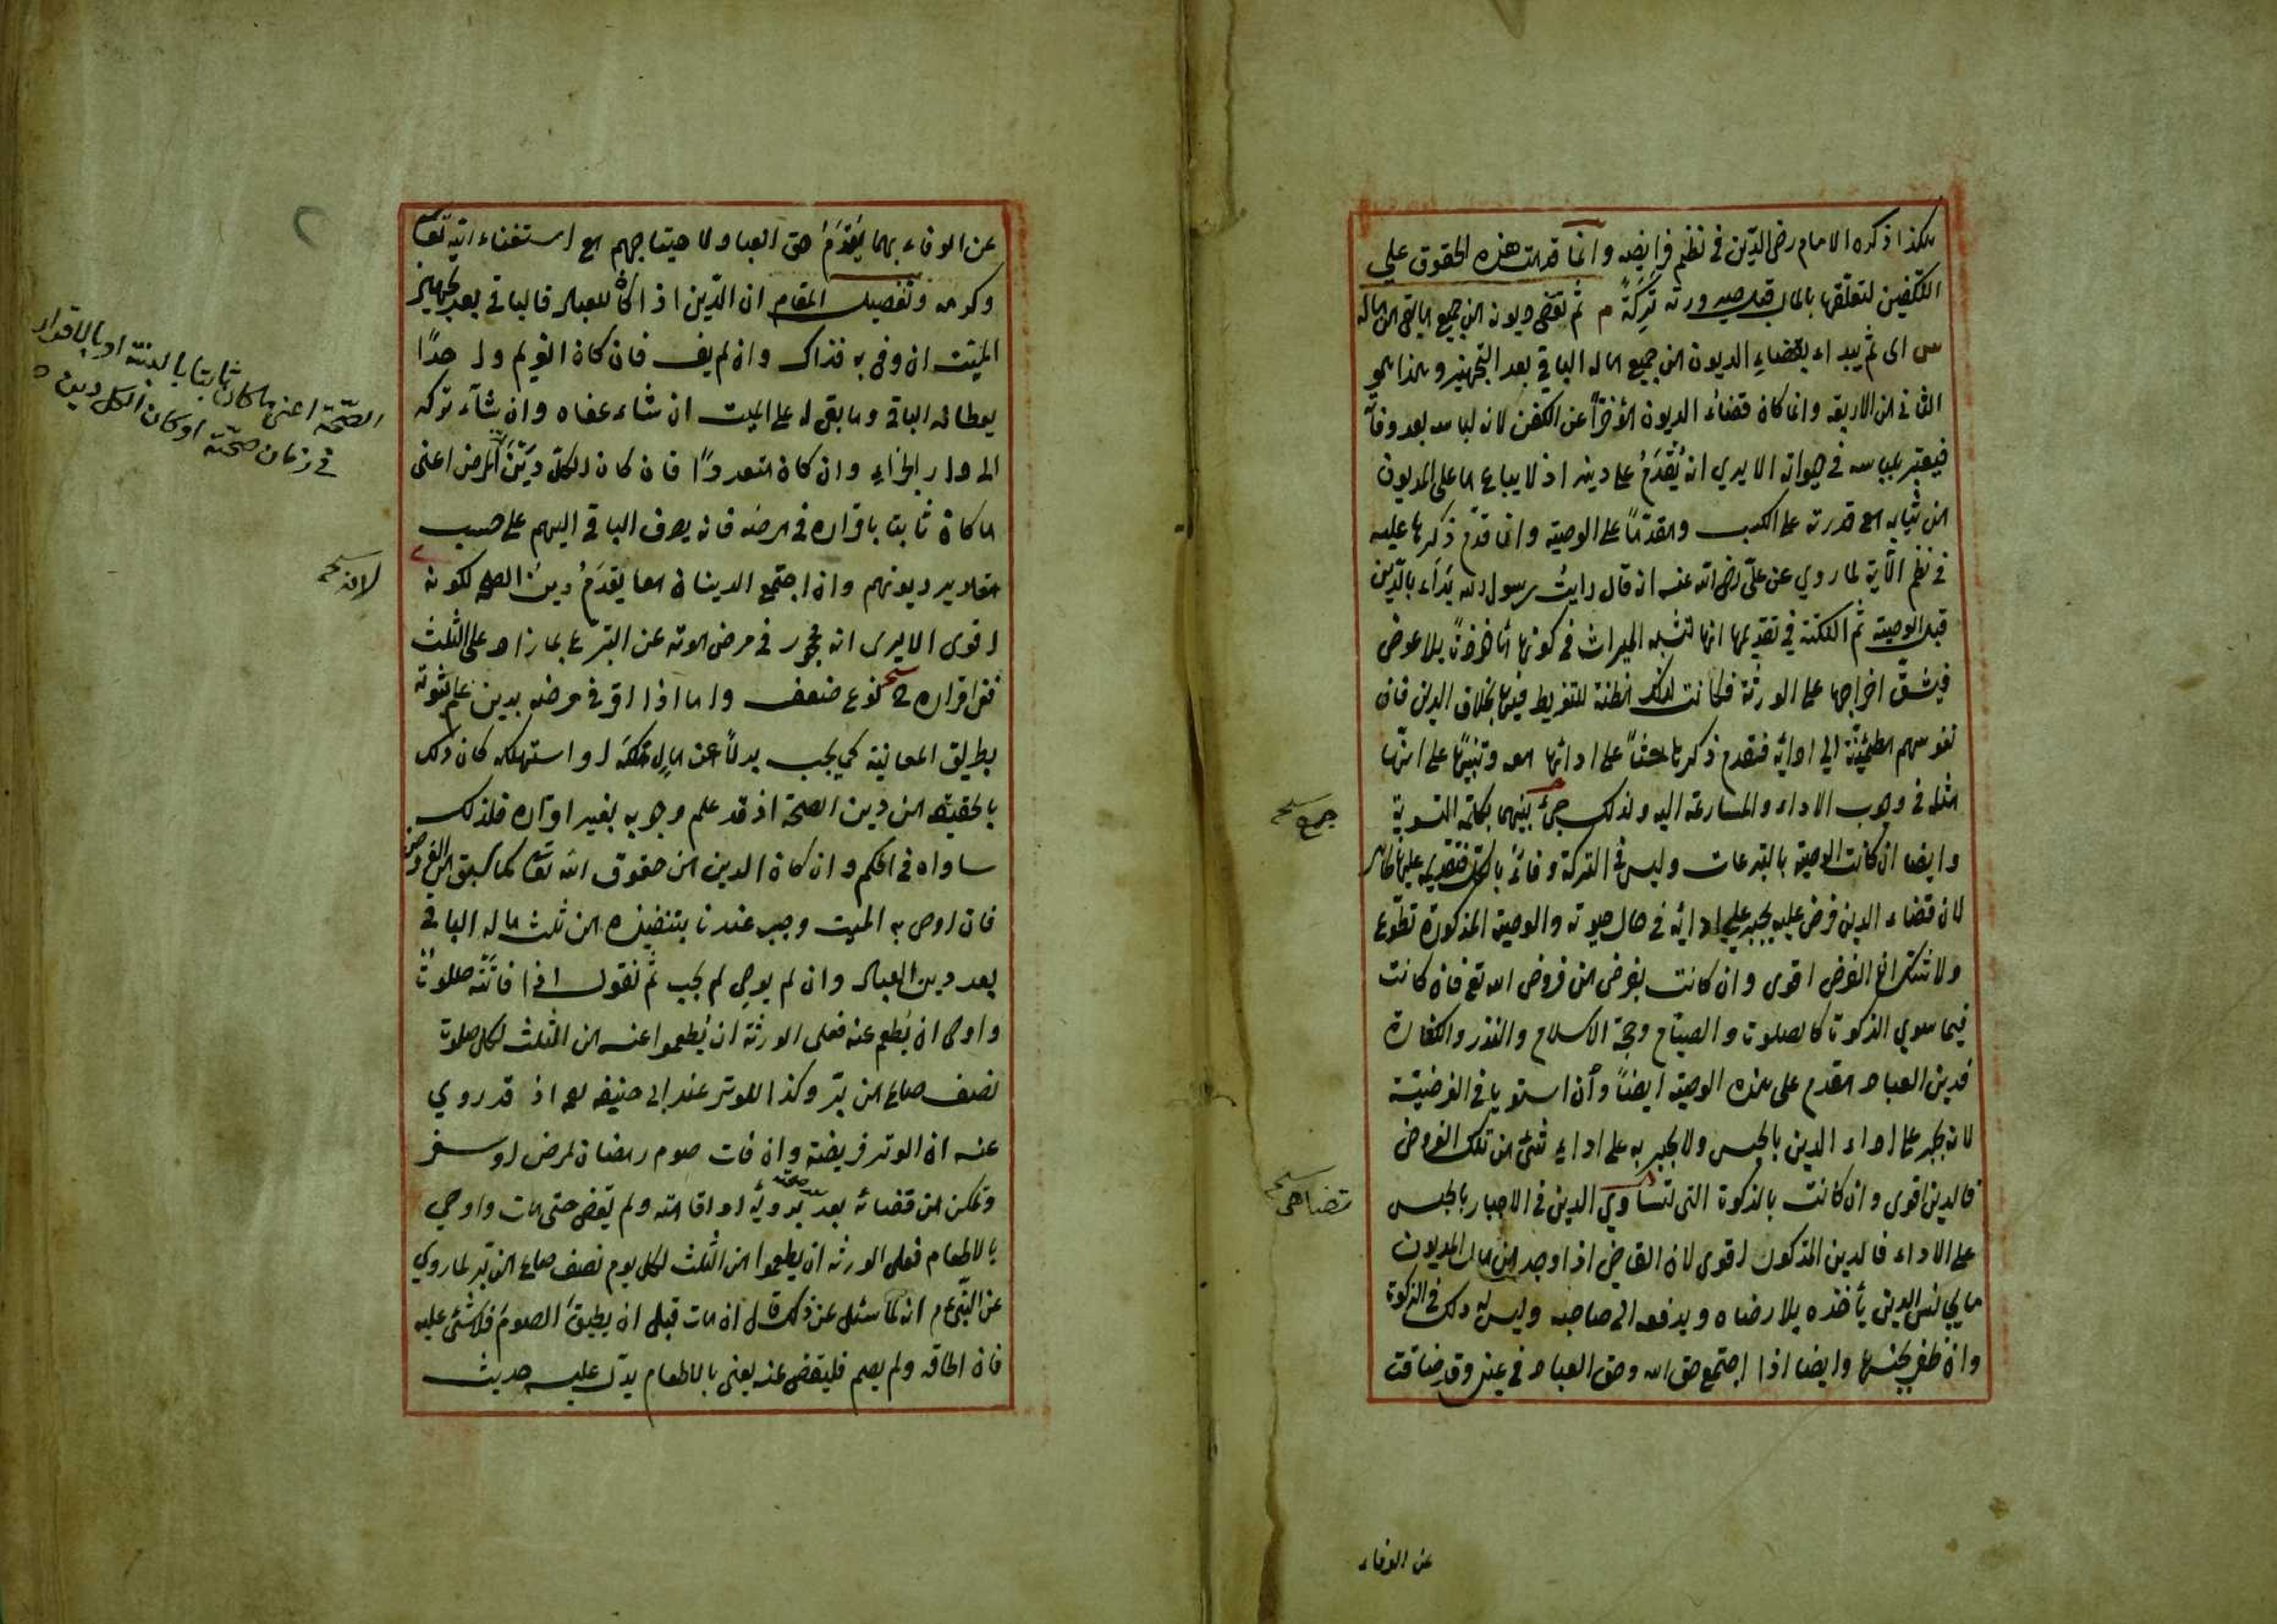 هكذا ذكره الامام رضى الدّين فى نظم فرايضه وانما قدمت هذه الحقوق على
التكفين لتعلقها بالمال قبل صيرورته تَرِكَةً م ثم تقضى ديونه من جميع ما بقى من ماله
س اى ثم يبداء بقضاءِ الديون من جميع ماله الباقى بعد التجهيز وهذا هو
الثانى من الاربعة وانما كان قضاءُ الديون مؤخرًا عن الكفن لانه لباسه بعد وفاته
فيعتبر بلباسه فى حيواته الا يرى انه يُقَدَّمُ على دينه اذ لا يباع ما على المديون
من ثيابه مع قدرته على الكسب ومقدمًا على الوصية وانما قدّم ذكرها عليه
فى نظم الآية لما روي عن علىّ رضى الله عنه انه قال رايتُ رسول الله بَدَاَء بالدّين
قبل الوصية ثم النكتة فى تقديمها انها تشبه الميراث فى كونها مأخوذةً بلا عوض
فيشقّ اخراجها على الورثة فكانت لذلك مظنة للتفريط فيها بخلاف الدين فان
نفوسهم مطمئنّة الى ادائه فقدم ذكرها حثّاً على ادائها معه وتنبيهًا على انها
مثله فى وجوب الاداء والمسارعة اليه ولذلك جئ بينهما بكلمة التسوية
جمع صح
وايضا ان كانت الوصية بالتبرعات وليس فى التركة وفاءٌ بالكل فتقديمه عليها ظاهر
لان قضاء الدين فرض عليه يجبر على ادائه فى حال حيوته والوصية المذكورة تطوّع
ولا شك ان الفرض اقوى وان كانت بفرض من فروض الله تع فان كانت
فيما سوي الزكوة كالصلوة والصيام وحجة الاسلام والنذر والكفارة
فدين العباد مقدم على هذه الوصية ايضاً وان استويا فى الفرضيّة
لانه يجبر على اداء الدين بالحبس ولا يجبر به على اداءِ شئ من تلك الفروض
فالدين اقوى وان كانت بالزكوة التى تساوي الدين فى الاجبار بالحبس
تضاهى صح
على الاداء فالدين المذكور اقوى لان القاضى اذا وجد من مال المديون
ما يجانس الدين يأخذه بلا رضاه ويدفعه الى صاحبه وليس له ذلك فى الزكوة
وان ظفر بجنسها وايضا اذا اجتمع حق الله وحق العباد فى عين وقد ضاقت
عن الوفاء
عن الوفاء بهما يُقَدَّمُ حق العباد لاحتياجهم مع استغناء الله تعالى
وكرمه وتفصيل المقام ان الدّين اذا كان للعباد فالباقى بعد تجهيز
الميّت ان وفى به فذاك وان لم يف فان كان الغريم واحدًا
يعطا له الباقى وما بقى له على الميت ان شاء عفاه وان شآء تركه
الى دار الجزاءِ وان كان متعددًا فان كان الكلّ دَيْنَ المرض اعنى
ما كان ثابتا باقراره فى مرضه فانه يصرف الباقى اليهم على حسب
مقادير ديونهم وان اجتمع الدينان معا يقدَمُ دينُ الصحة لكونه
لانه صح
الصحّة اعنى ما كان ثابتا بالبينة او بالاقرار
فى زمان صحّته او كان الكل دين
اقوى الا يرى انه محجور فى مرض موته عن التبرّع بما زاد على الثلث
ففى اقراره ح نوع ضعف واما اذا اقر فى مرضه بدين علم ثبوته
بطريق المعاينة كما يجب بدلاً عن مالٍ ملكه او استهلكه كان ذلك
بالحقيقة من دين الصحة اذ قد علم وجوبه بغير اقراره فلذلك
ساواه فى الحكم وان كان الدين من حقوق الله تعالى كما سبق من الفروض
فان اوصى به الميت وجب عندنا بتنفيذه من ثلث ماله الباقى
بعد دين العباد وان لم يوصِ لم يجب ثم نقول اذا فاتَتْه صلوةٌ
واوصى ان يُطعم عنه فعلى الورثة ان يُطعموا عنه من الثلث لكل صلوة
نصف صاع من برّ وكذا للوتر عند ابى حنيفه رحه اذ قد روي
عنه ان الوتر فريضة وان فات صوم رمضان لمرض او سفر
وتمكن من قضائه بعد برويه او اقامته ولم يقض حتى مات واوصى
صحته
بالاطعام فعلى الورثة ان يطعموا من الثلث لكل يوم نصف صاع من برّ لما روي
عن النّبى ع م انه لما سئل عن ذلك قال ان مات قبل ان يطيقَ الصومَ فلا شئ عليه
فان اطاقه ولم يصم فليقض عنه يعنى بالاطعام يدّل عليه حديث